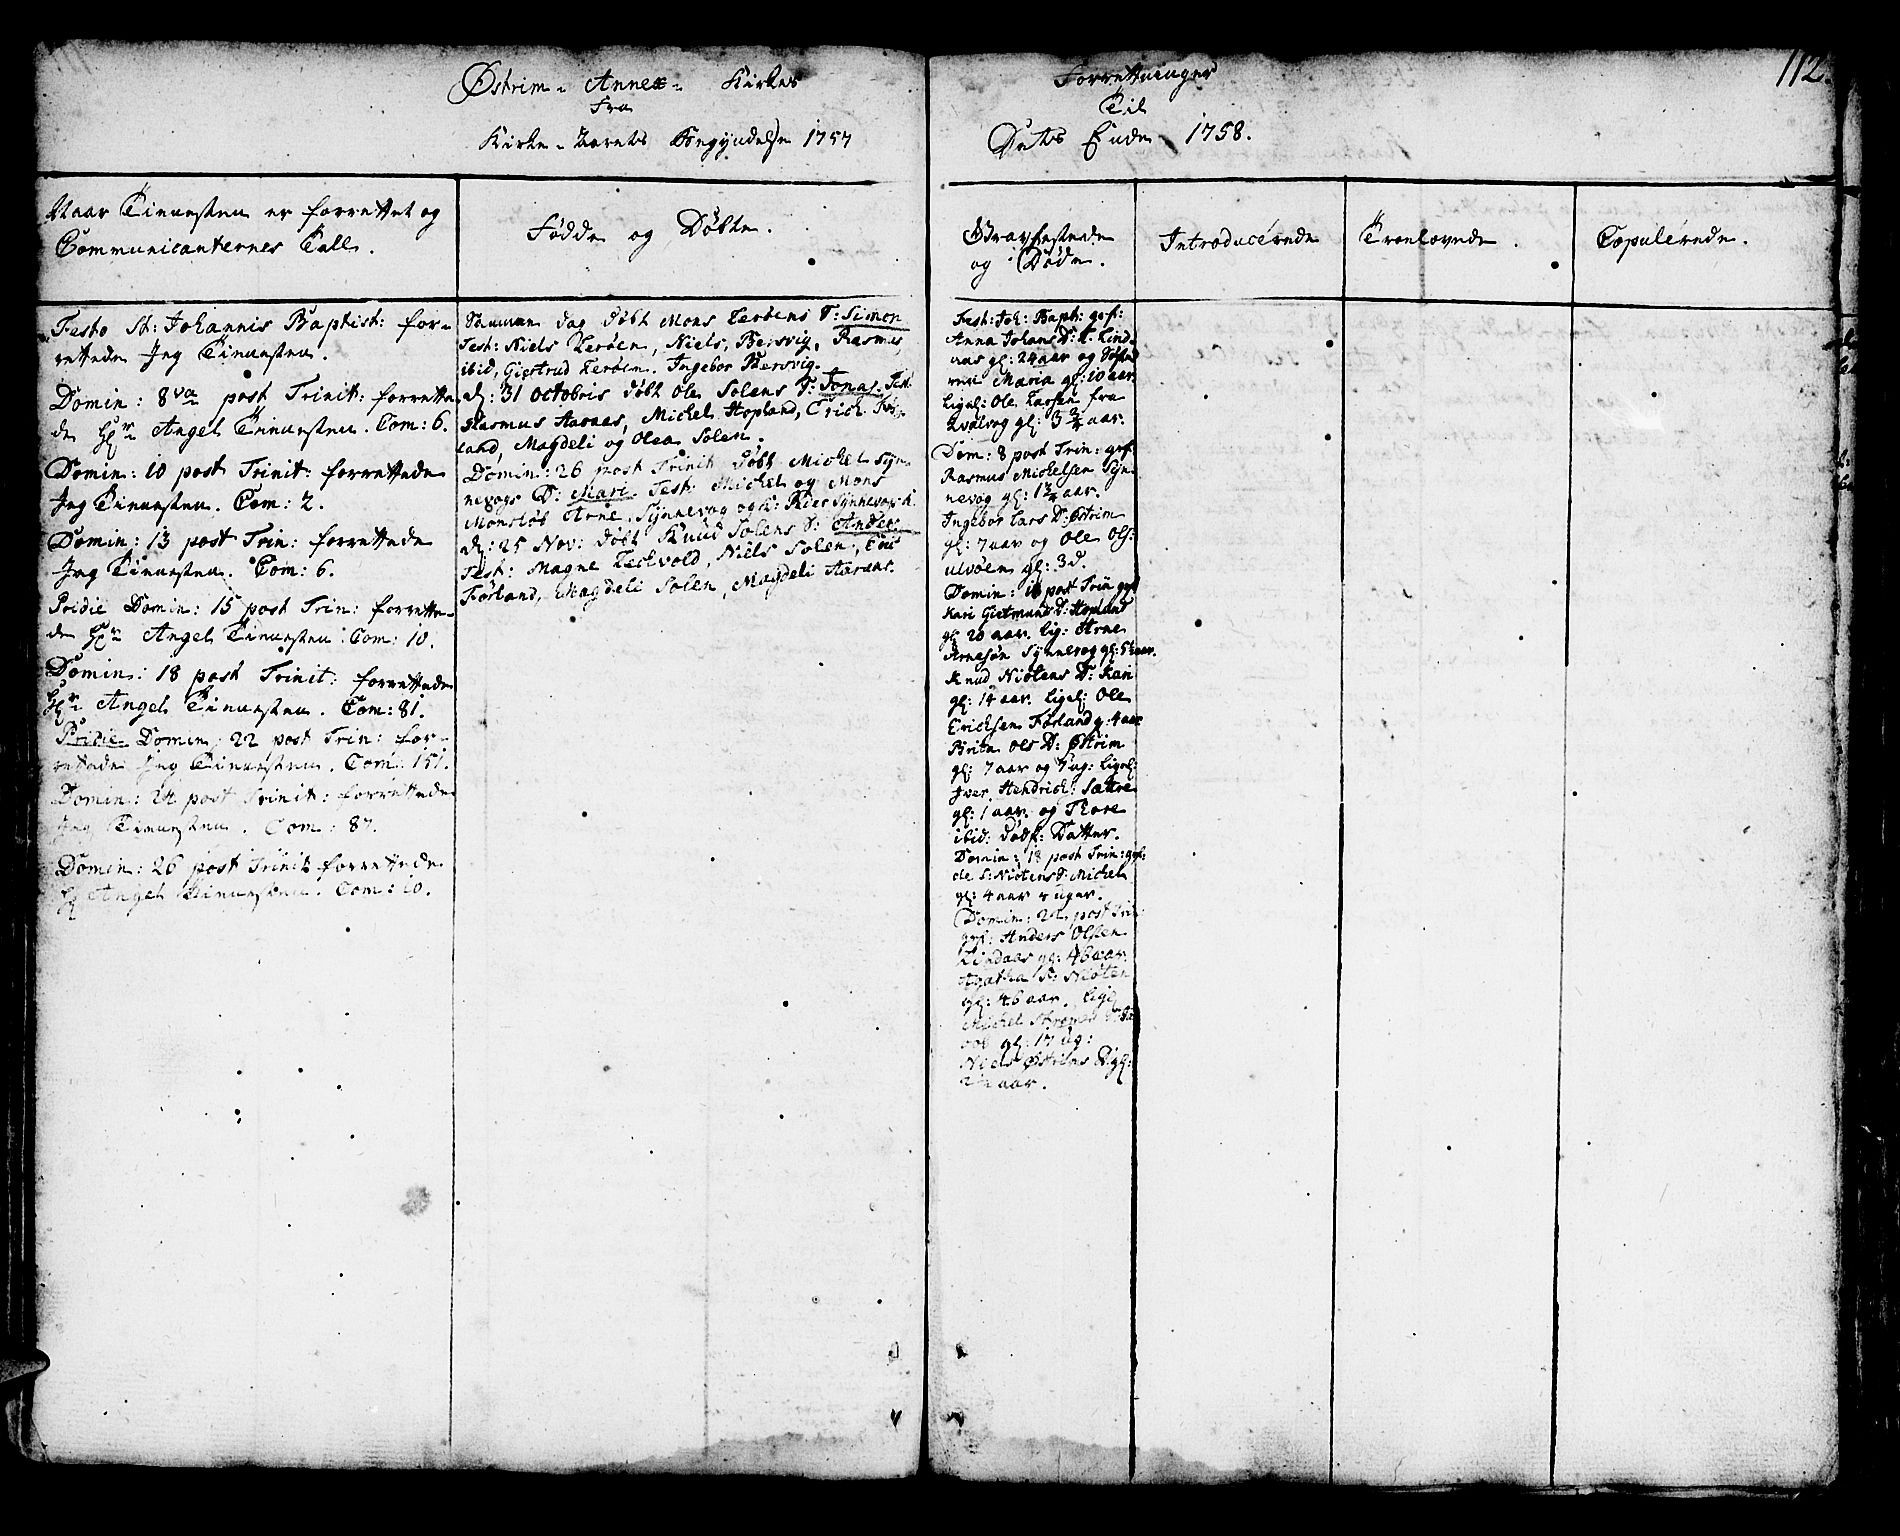 112.
Østrim - Annex - Kirkes Forrettninger
Fra Til
Kirke-Aarets Begyndelse 1757 Dets Ende 1758.
Naar Tienesten er forrettet og
Communicanternes Tall.
Fødde og Døbte.
Gravfestede
og Døde.
Introducerede
Troelovede.
Copulerede.
Festo St: Johannis Baptist: for-
rettede Jeg Tienesten.
Domin: 8va post Trinit: forrette-
de Hr Angel Tienesten. Com: 6.
Domin: 10 post Trinit: forrettede
Jeg Tienesten. Com: 2.
Domin: 13 post Trin: forrettede
Jeg Tienesten. Com: 6.
Pridie Domin: 15 post Trin: forrette-
de Hr Angel Tienesten. Com: 10.
Domin: 18 post Trinit: forrettede
Hr Angel Tienesten. Com: 81.
Pridie Domin: 22 post Trin: for-
rettede Jeg Tienesten. Com: 151.
Domin: 24 post Trinit: forrettede
Jeg Tienesten. Com: 87.
Domin: 26 post Trinit forrettede
Hr Angel Tienesten. Com: 10.
Samme dag døbt Mons Kerøens S: Simon
Test: Niels Kerøen, Niels, Beisvig, Rasmus
ibid, Giertrud Kerøen. Ingebor Bersvig.
d: 31 Octobris døbt Ole Solens S: Jonas. Test:
Rasmus Aarnes, Michel Hopland, Erich Før-
land, Magdeli og Olea Solen.
Domin: 26 post Trinit døbt Michel Syn-
nevogs D: Mari Test: Michel og Mons
Monsløb Arne, Synnevog og
d: 25 Nov: døbt Knud Solens S: Anders
Test: Magne Kestvold, Niels Solen, Eric
Førland, Magdeli Solen, Magdeli Aarnes.
Fest: Joh: Baph: grf:
Anna Johans D: Lind-
aas gl: 24 aar og
Maria gl: 10 aar.
Ligel: Ole Larsen fra
Kvalvog gl: 3 3/4 aar.
Dom: 8 post Trin: grf:
Rasmus Michelsen Syn-
nevog gl: 1 3/4 aar.
Ingebor Lars D: Østrim
gl: 7 aar og Ole Ols:
ulvøen gl: 3 d.
Domin: 10 post Trin grf
Kari Giermund D: Hopland
gl: 20 aar. lig: Arne
Arnesøn Synnevog gl: 5 aar.
Knud Niøtens D: Kari
gl: 14 aar. ligel: Ole
Erichsen Førland g: 4 aar
Brita Ols D: Østrim
gl: 7 aar og 7 ug: ligel:
Iver Hendrich: Sætre
gl: 1 aar. og Thore
ibid: dødf: Datter.
Domin: 18 post Trin: grf:
de S: Niøtens S: Michel
gl: 4 aar 2 uger.
Domin: 22 post Trin:
grf: Anders Olsen
Lindaas gl: 46 aar.
Agatha S: Niøten
gl: 46 aar. Ligel
Michel
gl: 17 ug:
Niels Østrims D gl:
2 1/2 aar.